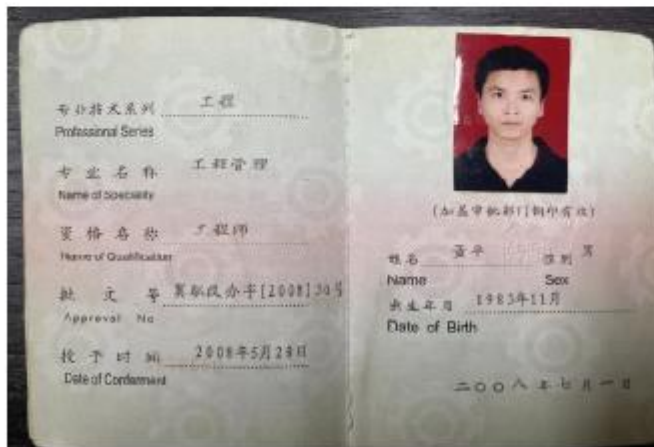 专业技术系列 工程
Professional Series
专业名称 工程管理
Name of Speciality
资格名称 工程师
Name of Qualification
批文号 冀职改办字[2008]30号
Approval No
授予时间 2008年5月28日
Date of Conferment
(加盖审批部门钢印有效)
姓名 性别 男
Name Sex
出生年月 1983年11月
Date of Birth
二〇〇八年七月一日